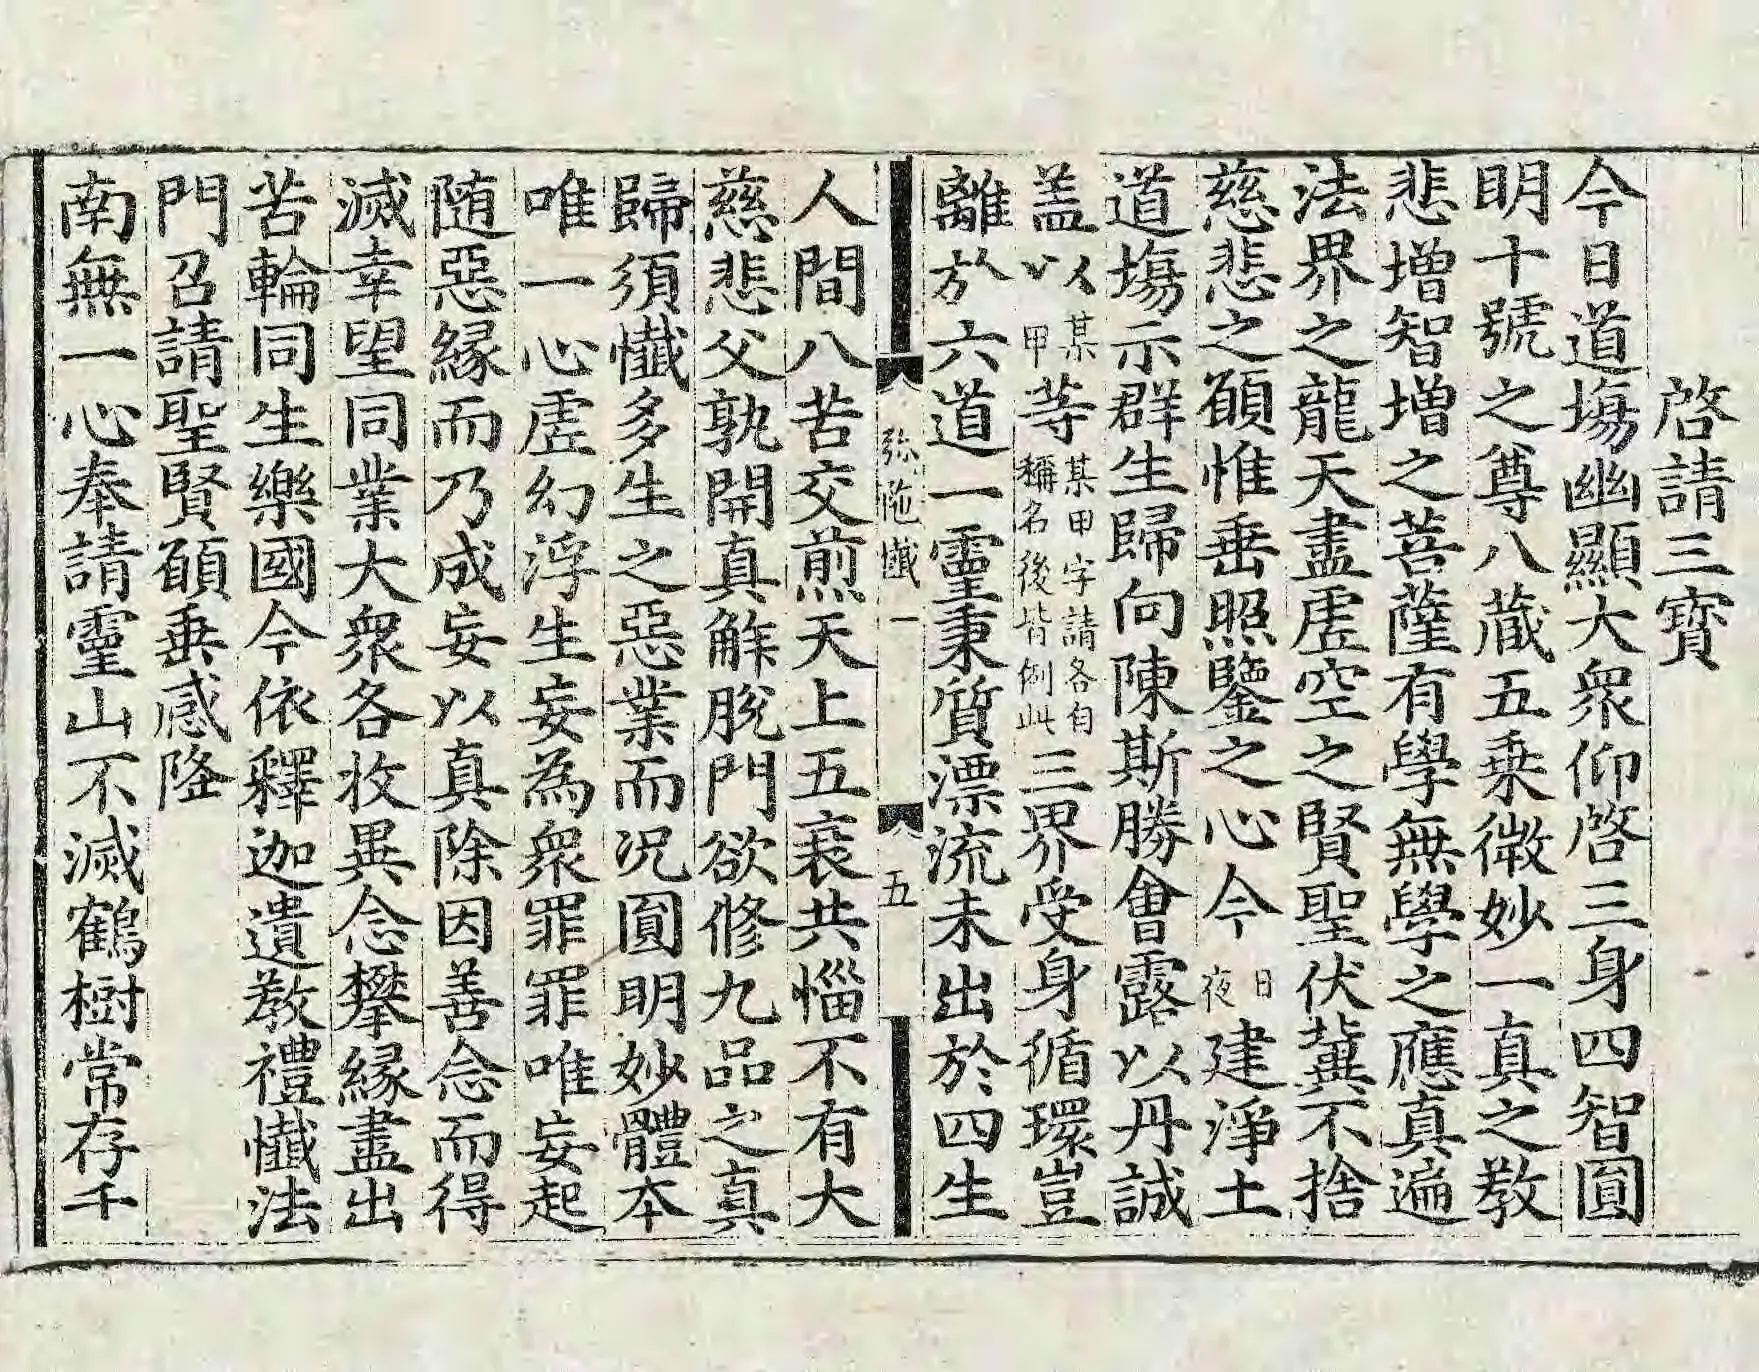 啓請三寳
今日道塲幽顯大衆仰啓三身四智圓
明十號之尊八藏五乗微妙一真之教
悲增智增之菩薩有學無學之應真遍
法界之龍天盡虗空之賢聖伏兾不捨
慈悲之願惟垂照鑒之心今日夜建淨土
道塲示群生歸向陳斯勝會露以丹誠
盖以某甲等某甲字請各自稱名後皆例此三界受身循環豈
離於六道一靈秉質漂流未出於四生
弥陁懺一 五
人間八苦交煎天上五衰共惱不有大
慈悲父孰開真解脫門欲修九品之真
歸須懺多生之惡業而况圓明妙體本
唯一心虗幻浮生妄為衆罪罪唯妄起
随惡縁而乃成妄以真除因善念而得
滅幸望同業大衆各攷異念攀縁盡出
苦輪同生樂國今依釋迦遺教禮懺法
門召請聖賢願垂感降
南無一心奉請靈山不滅鶴樹常存千